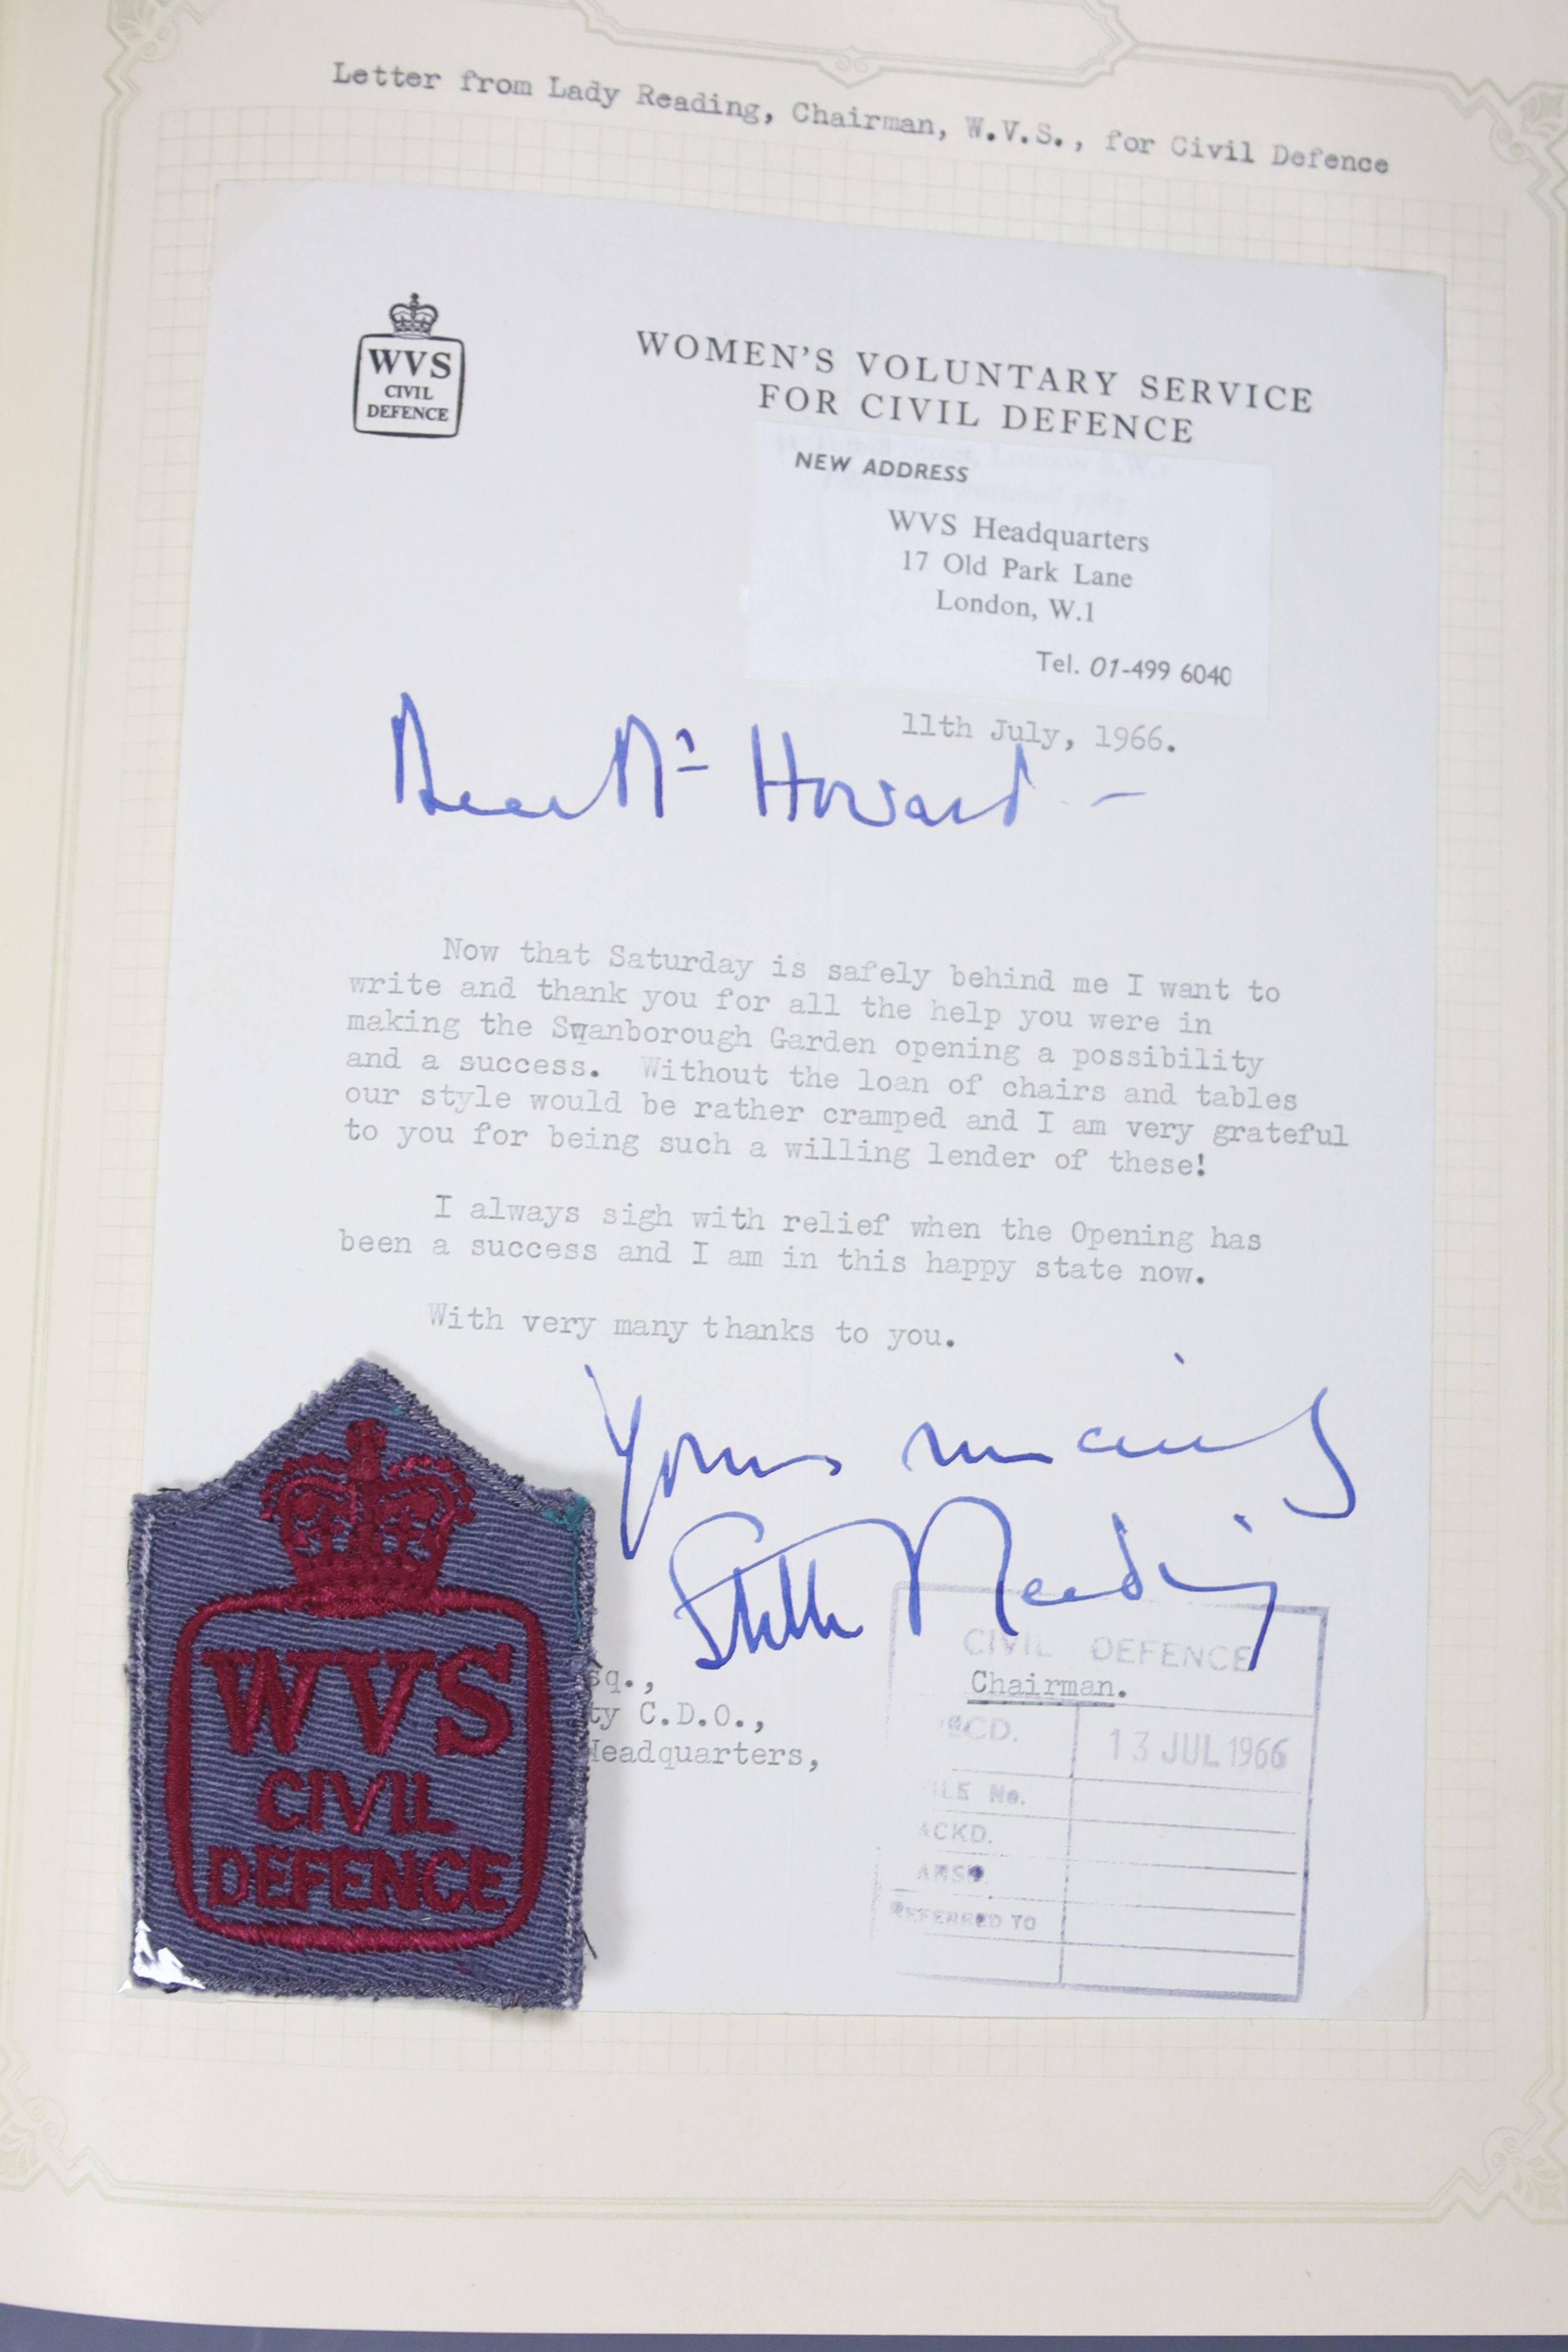 Letter from Lady Reading, Chairman, W.V.S., for Civil Defence
WVS
CIVIL
DEFENCE
WOMEN'S VOLUNTARY SERVICE
FOR CIVIL DEFENCE
NEW ADDRESS
WVS Headquarters
17 Old Park Lane
London, W.1
Tel. 01-499 6040
11th July, 1966.
Dear Mr Howard -
Now that Saturday is safely behind me I want to
write and thank you for all the help you were in
making the Swanborough Garden opening a possibility
and a success. Without the loan of chairs and tables
our style would be rather cramped and I am very grateful
to you for being such a willing lender of these!
I always sigh with relief when the Opening has
been a success and I am in this happy state now.
With very many thanks to you.
Yours sincerely
Stella Reading
Chairman.
sq.,
ty C.D.O.,
Headquarters,
CIVIL DEFENCE
RECD. 13 JUL 1966
FILE No.
ACKD.
ANSD.
REFERRED TO
WVS
CIVIL
DEFENCE